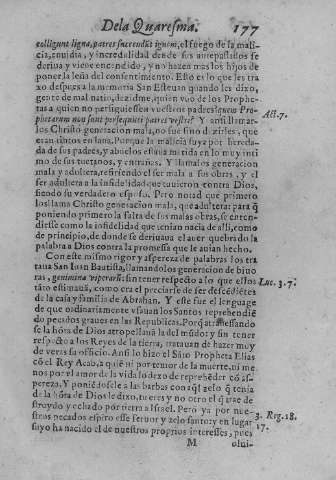 Dela Quaresma. 177
colligunt ligna, patres succendũt ignem, el fuego de la mali-
cia, embidia, y incredulidad desde sus antepassados se
deriua y viene encendido, y no hazen mas los hijos de
poner la leña del consentimiento. Esso es lo que les tra
xo despues a la memoria San Esteuan quando les dixo,
gente de mal natio, dezidme, quien vuo de los Prophe-
tas a quien no persiguiessen vuestros padres? quem Pro-
phetarum non sunt persequuti patres vestri? Y ansi llamar-
los Christo generacion mala, no fue sino dezirles, que
eran ruines en lana. Porque la malicia suya por hereda-
da de sus padres, y abuelos estaua metida en lo muy inti
mo de sus tuetanos, y entrañas. Y llamalos generacion
mala y adultera, refiriendo el ser mala a sus obras, y el
ser adultera a la infidelidad que tuuieron contra Dios,
siendo su verdadero esposo. Pero notad que primero
los llama Christo generacion mala, que adultera: para q̃
poniendo primero la falta de sus malas obras, se enten-
diesse como la infidelidad que tenian nacia de alli, como
de principio, de donde se deriuaua el auer quebrado la
palabra a Dios contra la promessa que le auian hecho.
Con este mismo rigor y aspereza de palabras los tra
taua San Iuan Bautista, llamandolos generacion de biuo
ras, genimina viperarũ: sin tener respecto a lo que estos
tãto estimauã, como era el preciarse de ser descẽdiẽtes
de la casa y familia de Abrahan. Y este fue el lenguaje
de que ordinariamente vsauan los Santos reprehendiẽ
do pecados graues en las Republicas. Porq̃ atrauessando
se la hõra de Dios atropellauã la del mũdo y sin tener
respecto a los Reyes de la tierra, tratauan de hazer muy
de veras su officio. Ansi lo hizo el Sãto Propheta Elias
cõ el Rey Acab, a quiẽ ni por temor de la muerte, ni me
nos por el amor de la vida lo dexo de reprehẽder cõ as-
pereza. Y poniẽdosele a las barbas con aq̃l zelo q̃ tenia
de la hõra de Dios le dixo, tu eres y no otro el q̃ trae de-
struydo y echado por tierra a Israel. Pero ya por nue-
stros pecados espiro esse feruor y zelo santo, y en lugar
suyo ha nacido el de nuestros proprios interesses, pues
M olui-
Act. 7.
Luc. 3. 7.
3. Reg. 18.
17.